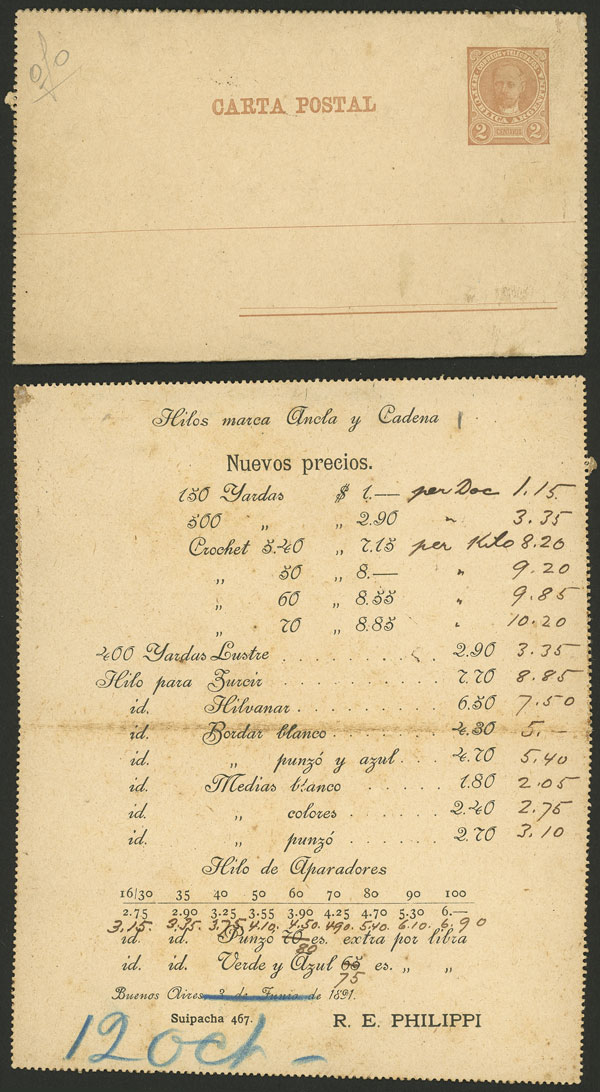 o/o
CARTA POSTAL
CORREOS Y TELEGRAFOS
REPUBLICA ARGENTINA
2 CENTAVOS 2
Hilos marca Ancla y Cadena
Nuevos precios.
150 Yardas $ 1.— per Doc 1.15
500 „ „ 2.90 " 3.35
Crochet 5.40 „ 7.15 per Kilo 8.20
„ 50 „ 8.— " 9.20
„ 60 „ 8.55 " 9.85
„ 70 „ 8.85 " 10.20
400 Yardas Lustre . . . . . . . . . 2.90 3.35
Hilo para Zurcir . . . . . . . . . 7.70 8.85
id. Hilvanar . . . . . . . . . 6.50 7.50
id. Bordar blanco . . . . . . . 4.30 5.—
id. „ punzó y azul . . . 4.70 5.40
id. Medias blanco . . . . . . 1.80 2.05
id. „ colores . . . . . . 2.40 2.75
id. „ punzó . . . . . . 2.70 3.10
Hilo de Aparadores
16/30 35 40 50 60 70 80 90 100
2.75 2.90 3.25 3.55 3.90 4.25 4.70 5.30 6.—
3.15. 3.35. 3.75. 4.10. 4.50. 4.90. 5.40. 6.10. 6.90
id. id. Punzó 70 es. extra por libra
80
id. id. Verde y Azul 65 es. „ „
75
Buenos Aires, 2 de Junio de 1891.
Suipacha 467. R. E. PHILIPPI
12 oct —